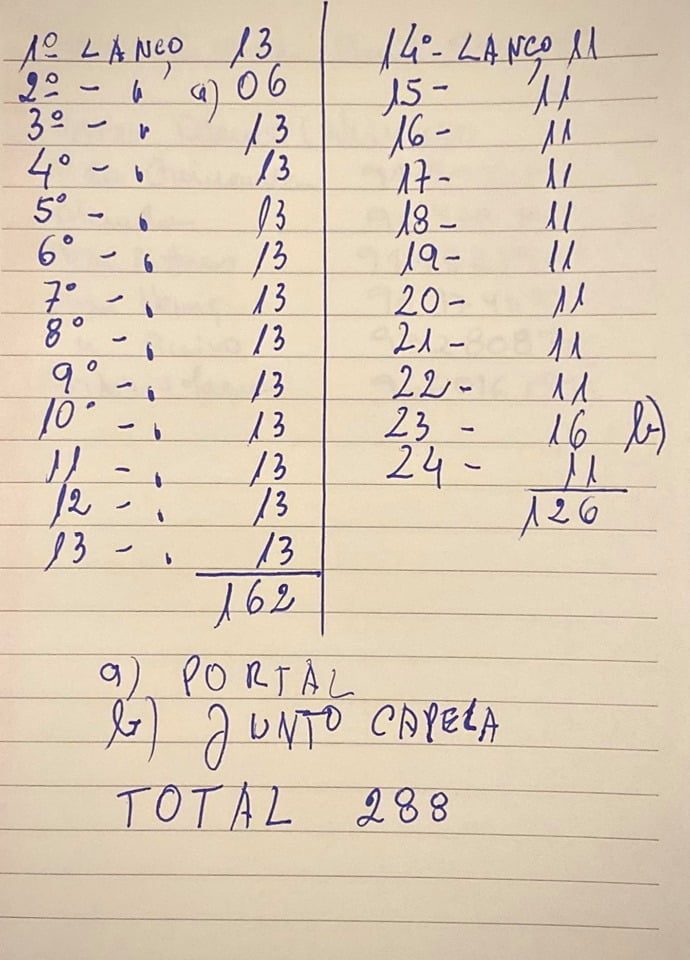 1º LANÇO 13
2º - " a) 06
3º - " 13
4º - " 13
5º - " 13
6º - " 13
7º - " 13
8º - " 13
9º - " 13
10º - " 13
11 - " 13
12 - " 13
13 - " 13
162
14º - LANÇO 11
15 - 11
16 - 11
17 - 11
18 - 11
19 - 11
20 - 11
21 - 11
22 - 11
23 - 16 b)
24 - 11
126
a) PORTAL
b) JUNTO CAPELA
TOTAL 288